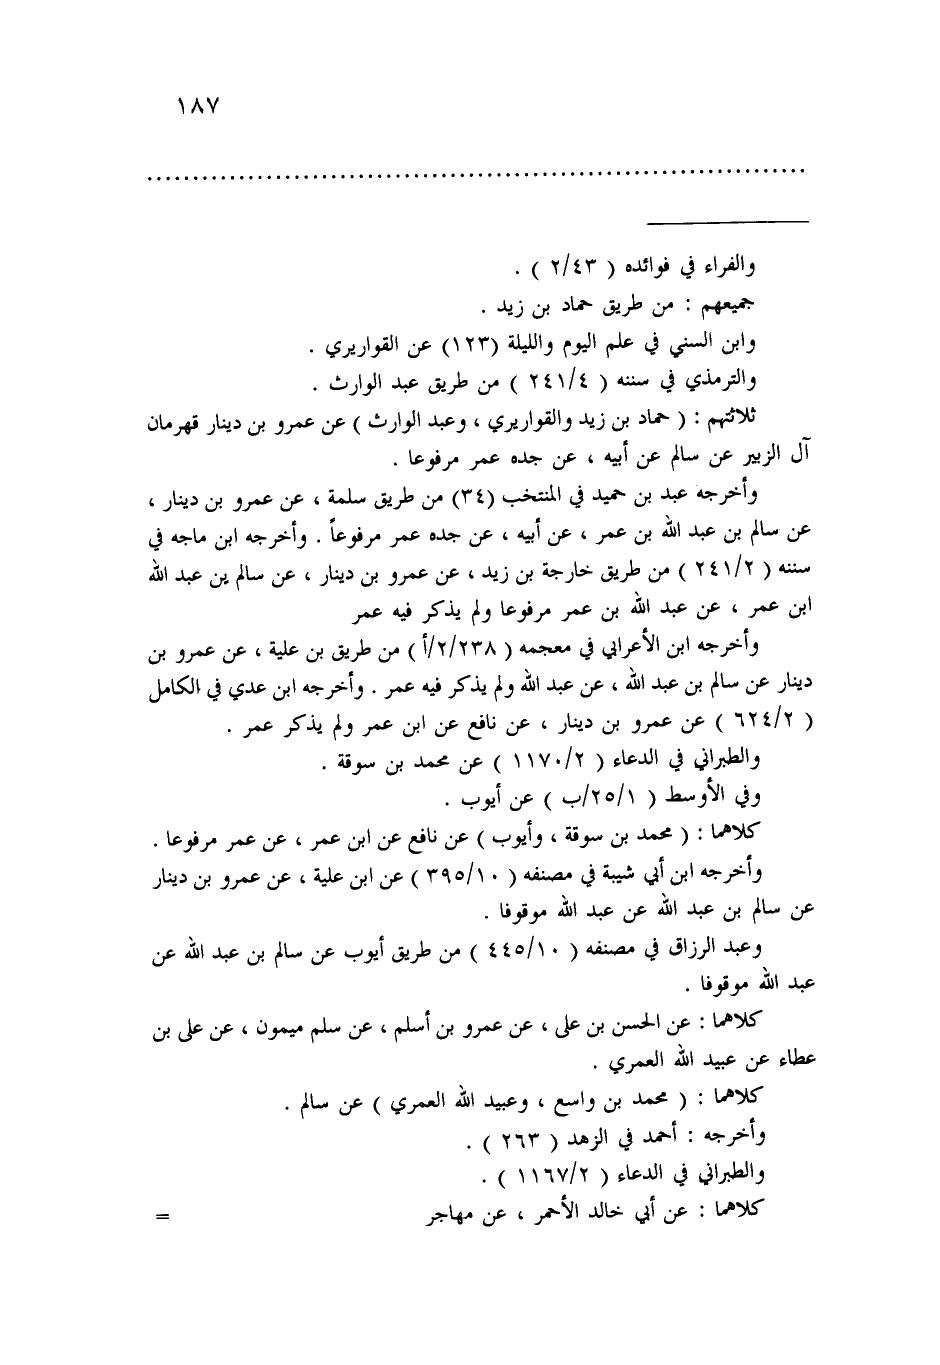 ١٨٧
والفراء في فوائده ( ٢/٤٣ ) .
جميعهم : من طريق حماد بن زيد .
وابن السني في علم اليوم والليلة (١٢٣) عن القواريري .
والترمذي في سننه ( ٢٤١/٤ ) من طريق عبد الوارث .
ثلاثتهم : ( حماد بن زيد والقواريري ، وعبد الوارث ) عن عمرو بن دينار قهرمان
آل الزبير عن سالم عن أبيه ، عن جده عمر مرفوعا .
وأخرجه عبد بن حميد في المنتخب (٣٤) من طريق سلمة ، عن عمرو بن دينار ،
عن سالم بن عبد الله بن عمر ، عن أبيه ، عن جده عمر مرفوعاً . وأخرجه ابن ماجه في
سننه ( ٢٤١/٢ ) من طريق خارجة بن زيد ، عن عمرو بن دينار ، عن سالم بن عبد الله
ابن عمر ، عن عبد الله بن عمر مرفوعا ولم يذكر فيه عمر
وأخرجه ابن الأعرابي في معجمه ( ٢/٢٣٨/أ ) من طريق بن علية ، عن عمرو بن
دينار عن سالم بن عبد الله ، عن عبد الله ولم يذكر فيه عمر . وأخرجه ابن عدي في الكامل
( ٦٢٤/٢ ) عن عمرو بن دينار ، عن نافع عن ابن عمر ولم يذكر عمر .
والطبراني في الدعاء ( ١١٧٠/٢ ) عن محمد بن سوقة .
وفي الأوسط ( ٢٥/١/ب ) عن أيوب .
كلاهما : ( محمد بن سوقة ، وأيوب ) عن نافع عن ابن عمر ، عن عمر مرفوعا .
وأخرجه ابن أبي شيبة في مصنفه ( ٣٩٥/١٠ ) عن ابن علية ، عن عمرو بن دينار
عن سالم بن عبد الله عن عبد الله موقوفا .
وعبد الرزاق في مصنفه ( ٤٤٥/١٠ ) من طريق أيوب عن سالم بن عبد الله عن
عبد الله موقوفا .
كلاهما : عن الحسن بن على ، عن عمرو بن أسلم ، عن سلم ميمون ، عن على بن
عطاء عن عبيد الله العمري .
كلاهما : ( محمد بن واسع ، وعبيد الله العمري ) عن سالم .
وأخرجه : أحمد في الزهد ( ٢٦٣ ) .
والطبراني في الدعاء ( ١١٦٧/٢ ) .
كلاهما : عن أبي خالد الأحمر ، عن مهاجر =